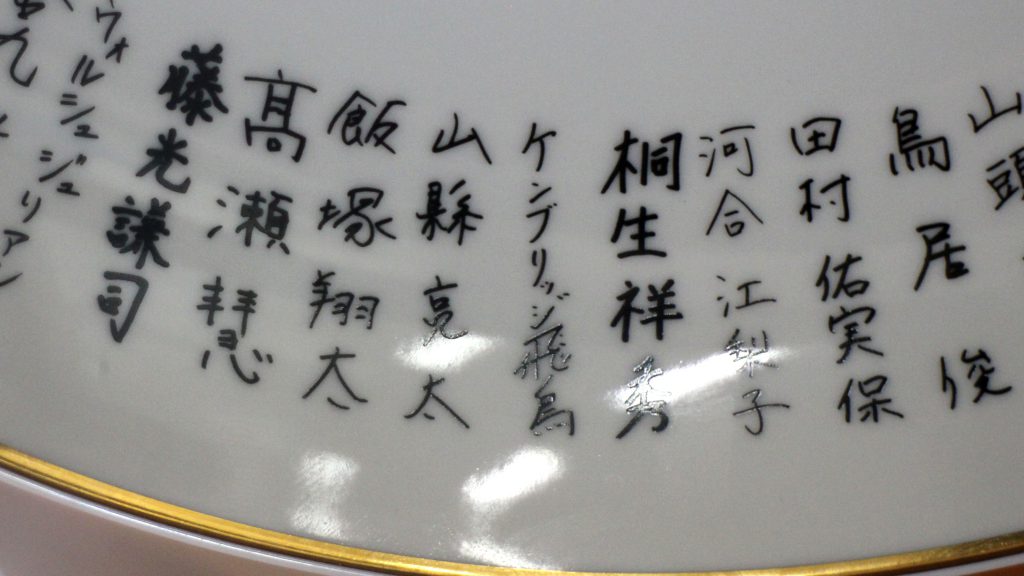 山頭
鳥居 俊
田村 佑実保
河合 江梨子
桐生 祥秀
ケンブリッジ飛鳥
山縣 亮太
飯塚 翔太
髙瀬 慧
藤光謙司
ウォルシュジュリアン